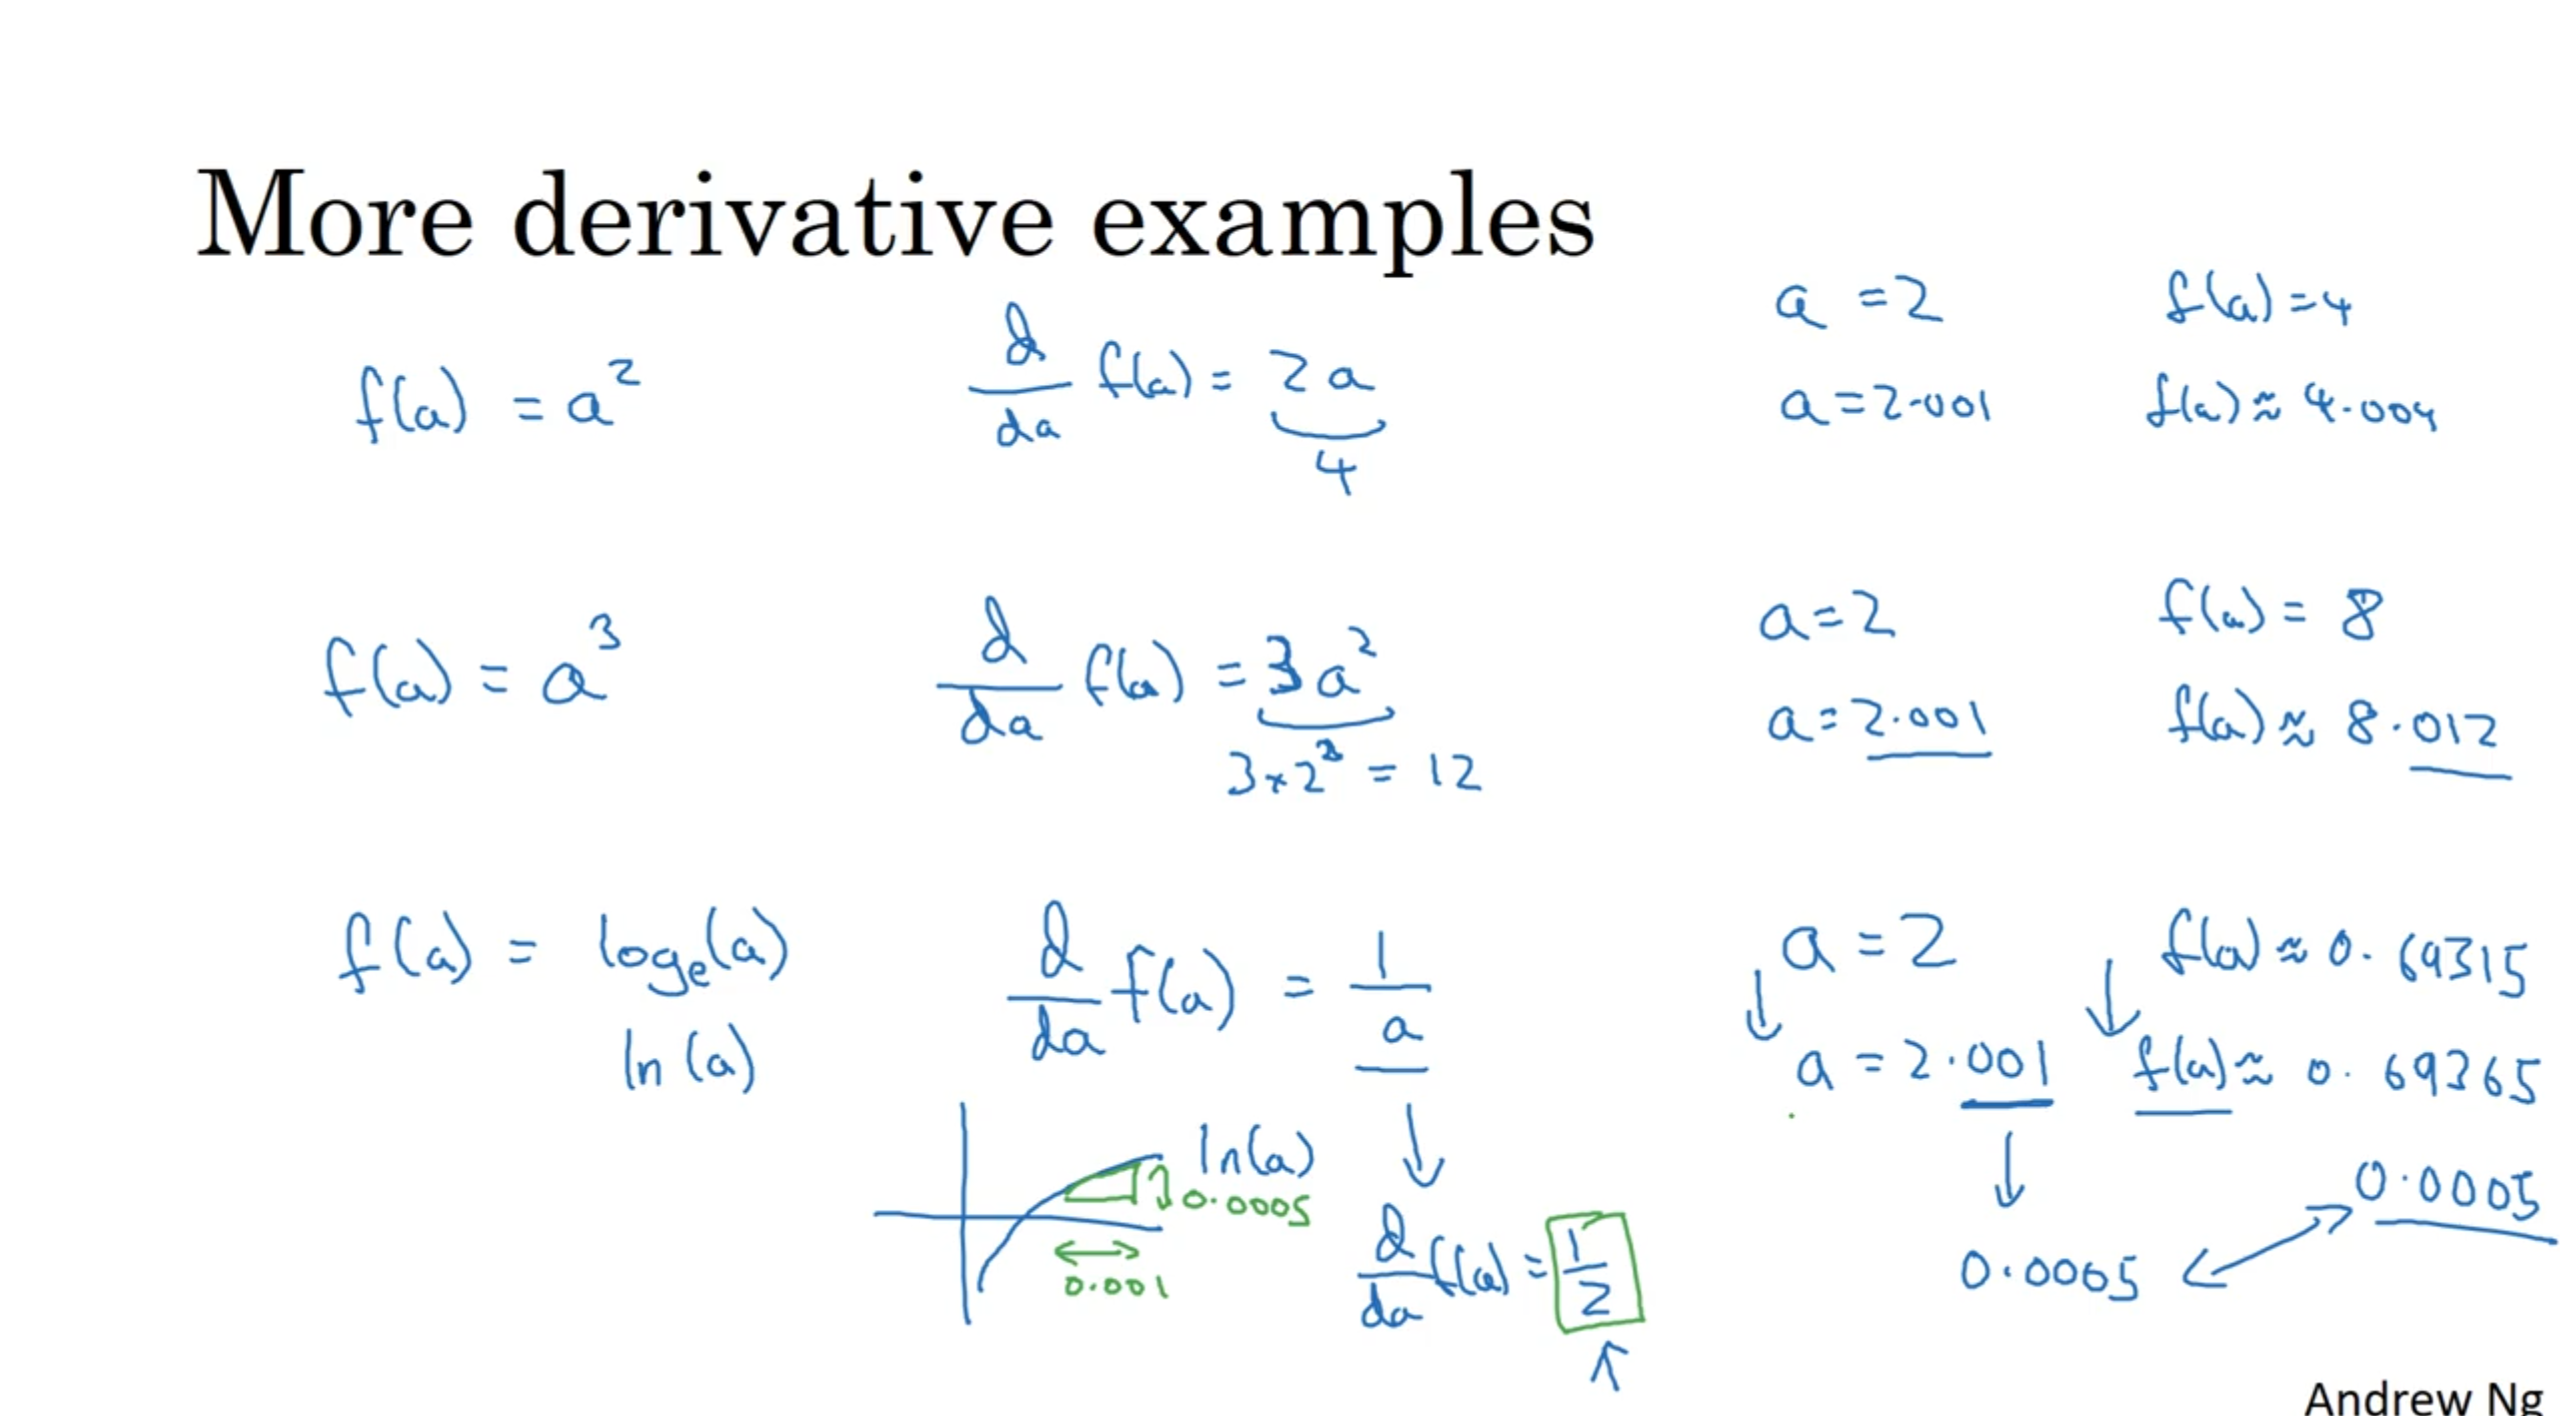 More derivative examples
f(a) = a²
d/da f(a) = 2a
4
a = 2 f(a) = 4
a = 2.001 f(a) ≈ 4.004
f(a) = a³
d/da f(a) = 3a²
3×2² = 12
a = 2 f(a) = 8
a = 2.001 f(a) ≈ 8.012
f(a) = logₑ(a)
ln(a)
d/da f(a) = 1/a
d/da f(a) = 1/2
ln(a)
0.0005
0.001
a = 2 f(a) ≈ 0.69315
a = 2.001 f(a) ≈ 0.69365
0.0005
0.0005
Andrew Ng